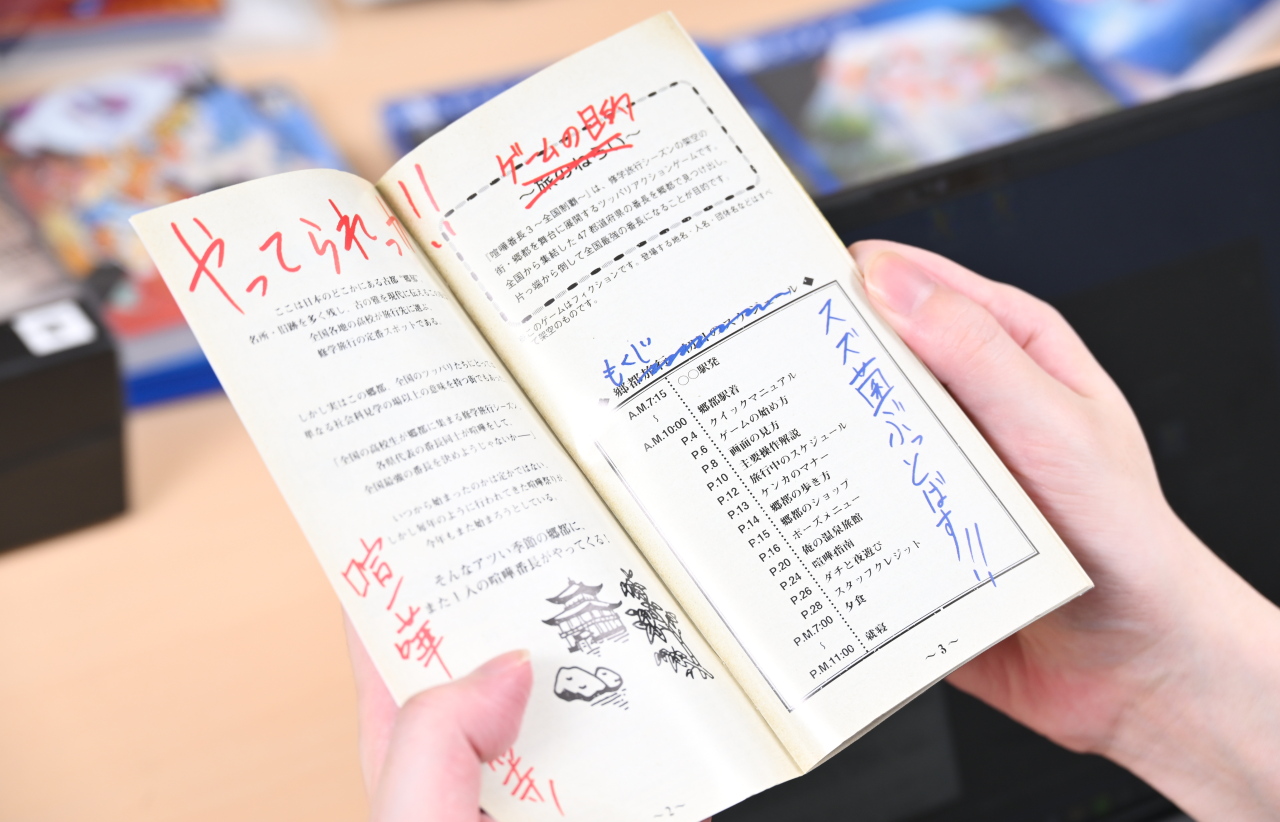 やってられっ!!
ここは日本のどこかにある古都“郷都”
名所・旧跡を多く残し、古の雅を現代に伝える
全国各地の高校が旅行先に選ぶ、
修学旅行の定番スポットである。
しかし実はこの郷都、全国のツッパリたちにとって
単なる社会科見学の場以上の意味を持つ街でもあった
「全国の高校生が郷都に集まる修学旅行シーズン
各県代表の番長同士が喧嘩をして、
全国最強の番長を決めようじゃないか――」
いつから始まったのかは定かではない、
しかし毎年のように行われてきた喧嘩祭りが
今年もまた始まろうとしている。
そんなアツい季節の郷都に、
また1人の喧嘩番長がやってくる!
喧嘩
～2～
ゲームの目的
～旅のねらい～
『喧嘩番長3～全国制覇～』は、修学旅行シーズンの架空の
街・郷都を舞台に展開するツッパリアクションゲームです。
全国から集結した47都道府県の番長を郷都で見つけ出し、
片っ端から倒して全国最強の番長になることが目的です。
このゲームはフィクションです。登場する地名・人名・団体名などはすべ
て架空のものです。
もくじ
郷都旅
A.M.7:15 ○○駅発
～
A.M.10:00 郷都駅着
P.4 クイックマニュアル
P.6 ゲームの始め方
P.8 画面の見方
P.10 主要操作解説
P.12 旅行中のスケジュール
P.13 ケンカのマナー
P.14 郷都の歩き方
P.15 郷都のショップ
P.16 ポーズメニュー
P.20 俺の温泉旅館
P.24 喧嘩指南
P.26 ダチと夜遊び
P.28 スタッフクレジット
P.M.7:00 夕食
～
P.M.11:00 就寝
スズ菌ぶっとばす!!
～3～